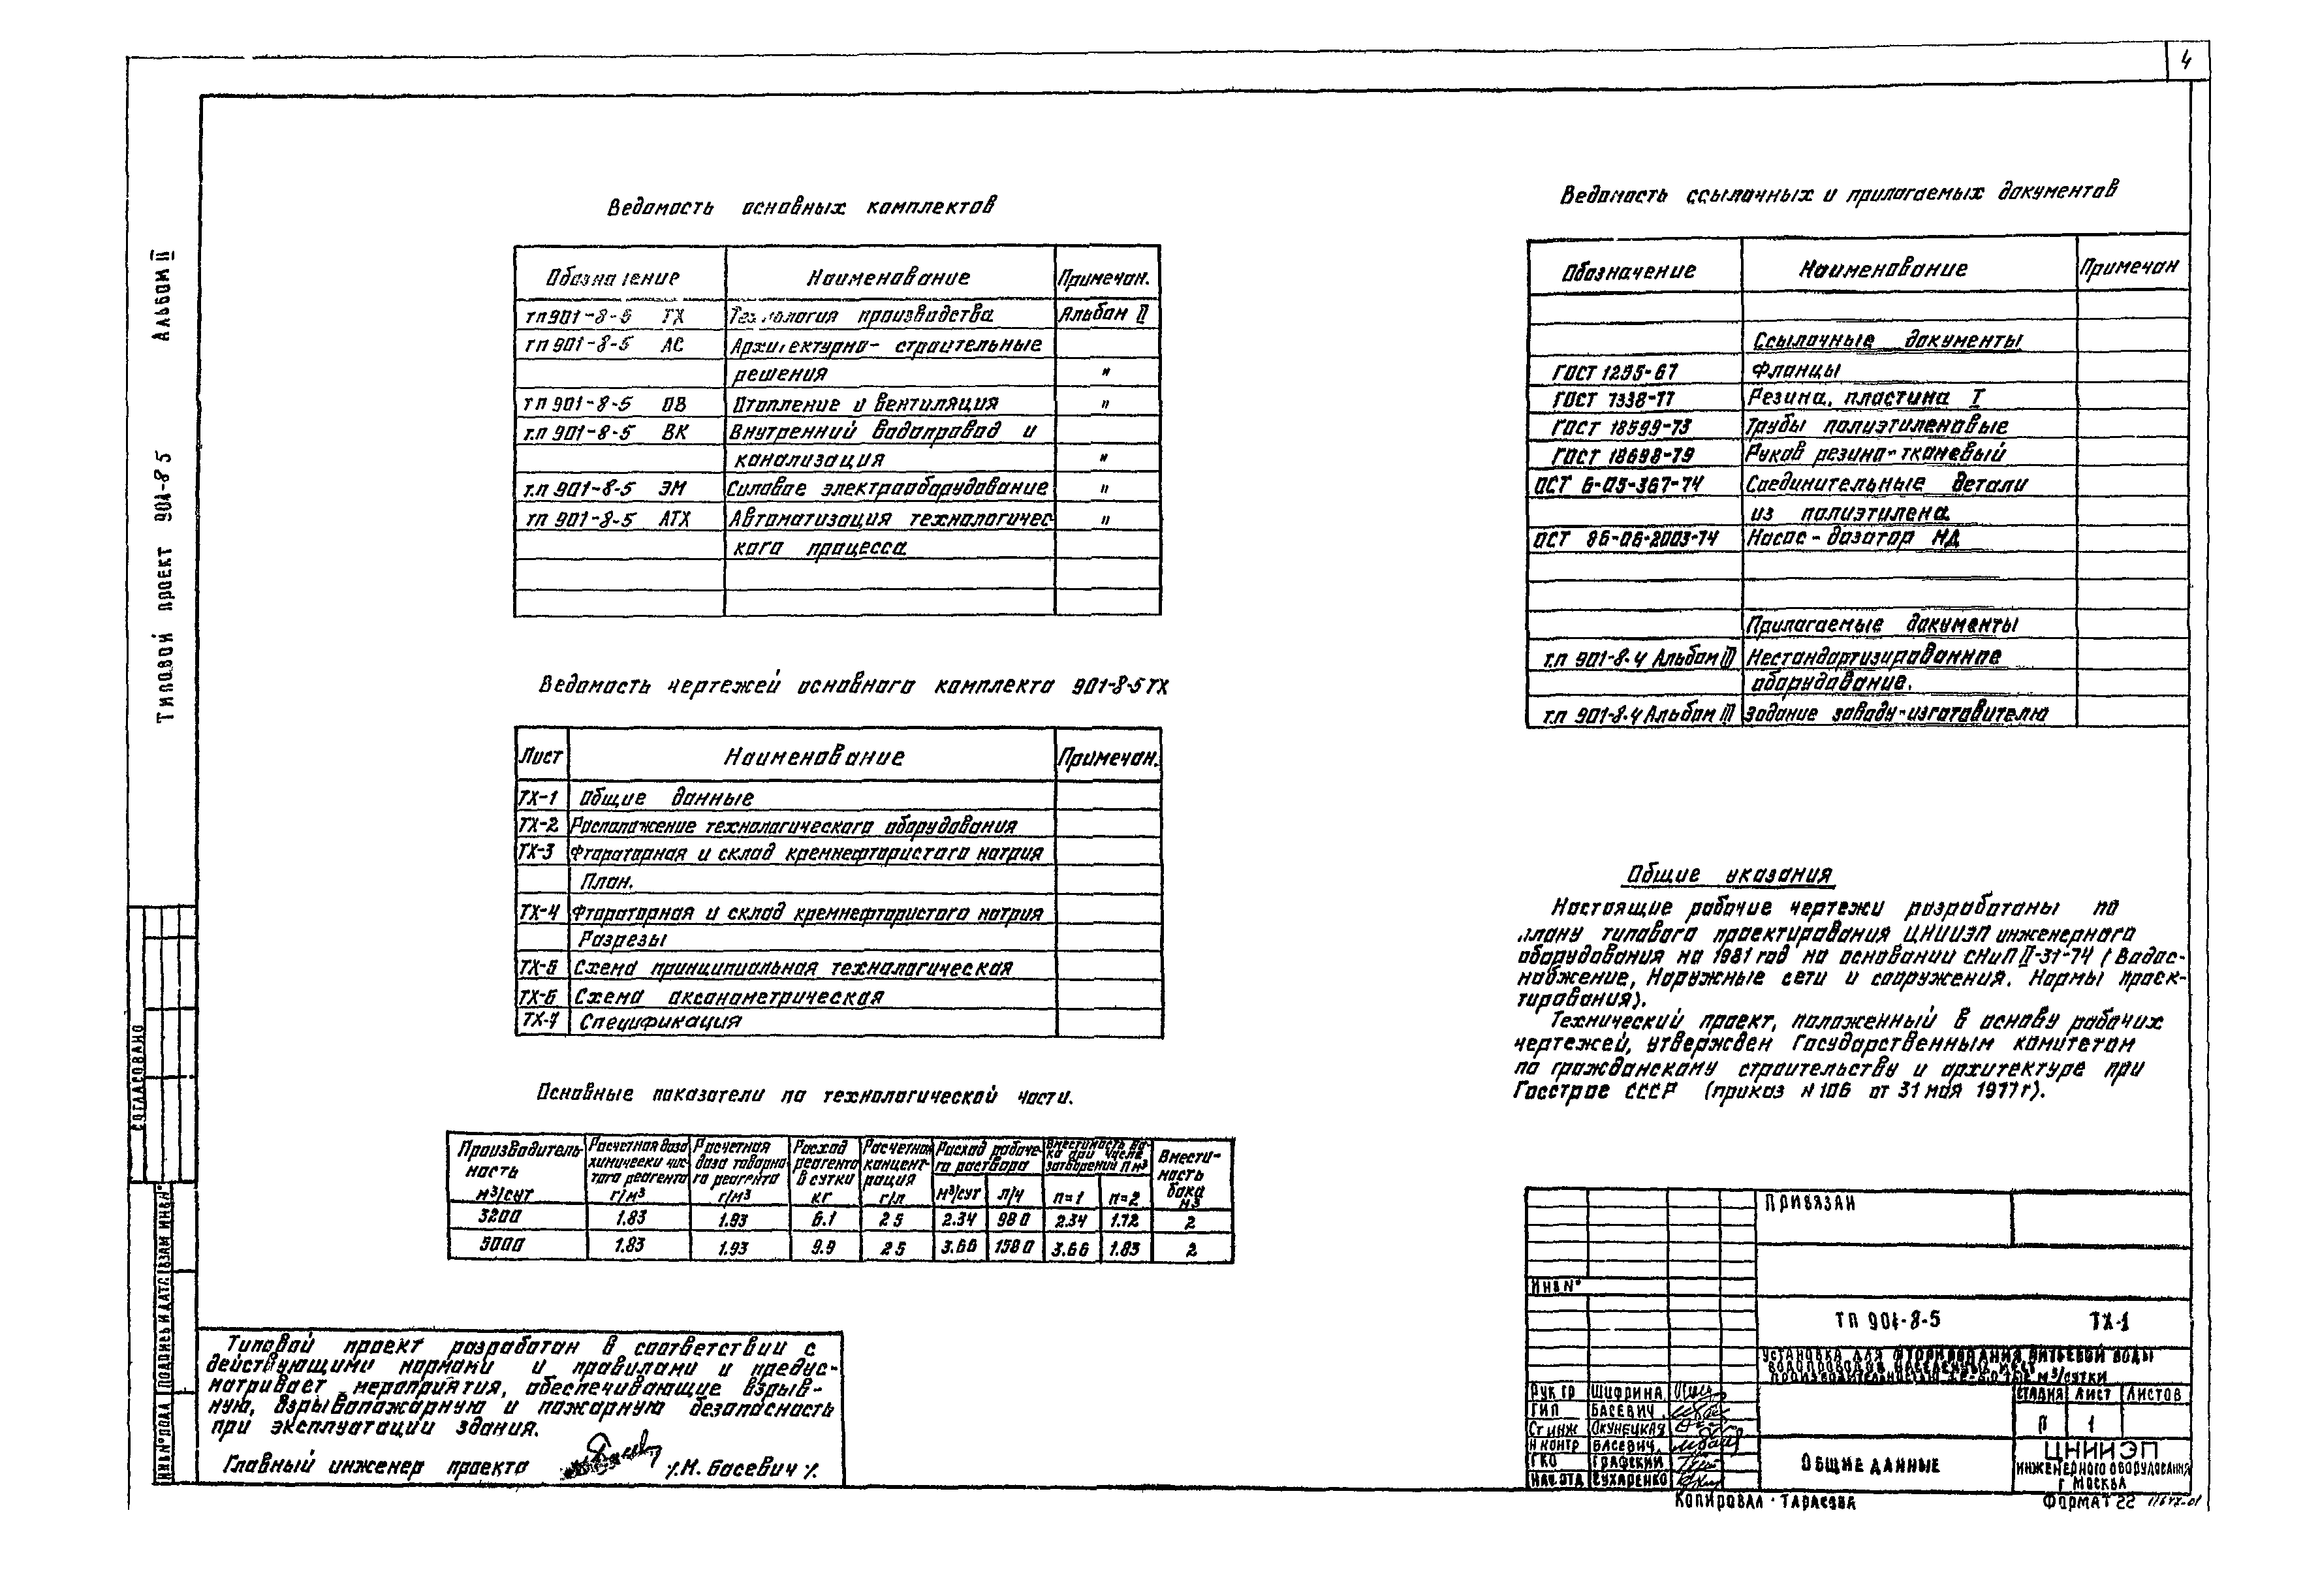 4
Альбом II
Типовой проект 901-8-5
Ведомость основных комплектов
Обозначение Наименование Примечан.
тп 901-8-5 ТХ Технология производства Альбом II
тп 901-8-5 АС Архитектурно-строительные
решения "
тп 901-8-5 ОВ Отопление и вентиляция "
т.п 901-8-5 ВК Внутренний водопровод и
канализация "
т.п 901-8-5 ЭМ Силовое электрооборудование "
тп 901-8-5 АТХ Автоматизация технологичес- "
кого процесса
Ведомость чертежей основного комплекта 901-8-5 ТХ
Лист Наименование Примечан.
ТХ-1 Общие данные
ТХ-2 Расположение технологического оборудования
ТХ-3 Фтораторная и склад кремнефтористого натрия
План.
ТХ-4 Фтораторная и склад кремнефтористого натрия
Разрезы
ТХ-5 Схема принципиальная технологическая
ТХ-6 Схема аксонометрическая
ТХ-7 Спецификация
Основные показатели по технологической части.
Производительность м³/сут Расчетная доза химически чистого реагента г/м³ Расчетная доза товарного реагента г/м³ Расход реагента в сутки кг Расчетная концентрация г/л Расход рабочего раствора м³/сут л/ч Вместимость бака при числе затворений n м³ n=1 n=2 Вместимость бака м³
3200 1.83 1.93 6.1 25 2.34 980 2.34 1.72 2
5000 1.83 1.93 9.9 25 3.66 1580 3.66 1.83 2
Типовой проект разработан в соответствии с
действующими нормами и правилами и предус-
матривает мероприятия, обеспечивающие взрыв-
ную, взрывопожарную и пожарную безопасность
при эксплуатации здания.
Главный инженер проекта /.М. Басевич /.
Ведомость ссылочных и прилагаемых документов
Обозначение Наименование Примечан
Ссылочные документы
ГОСТ 1255-67 Фланцы
ГОСТ 7338-77 Резина, пластина Т
ГОСТ 18599-73 Трубы полиэтиленовые
ГОСТ 18698-79 Рукав резино-тканевый
ОСТ 6-05-367-74 Соединительные детали
из полиэтилена.
ОСТ 86-06-2003-74 Насос-дозатор НД
Прилагаемые документы
т.п 901-8-4 Альбом III Нестандартизированное
оборудование.
т.п 901-8-4 Альбом III Задание заводу-изготовителю
Общие указания
Настоящие рабочие чертежи разработаны по
плану типового проектирования ЦНИИЭП инженерного
оборудования на 1981 год на основании СНиП II-31-74 (Водос-
набжение, Наружные сети и сооружения. Нормы проек-
тирования).
Технический проект, положенный в основу рабочих
чертежей, утвержден Государственным комитетом
по гражданскому строительству и архитектуре при
Госстрое СССР (приказ N 106 от 31 мая 1977г).
Привязан
Инв N°
ТП 901-8-5 ТХ-1
Установка для фторирования питьевой воды
водопроводов населенных мест
производительностью м³/сутки
Рук гр Шифрина
ГИП Басевич
Ст инж Окунецкая
Н контр Басевич
ГКО Графский
Нач отд Сухаренко
Стадия Лист Листов
Р 1
Общие данные
ЦНИИЭП
инженерного оборудования
г Москва
Копировал: Тарасова
Формат 22
Согласовано
Инв N° подл Подпись и дата Взам инв N°